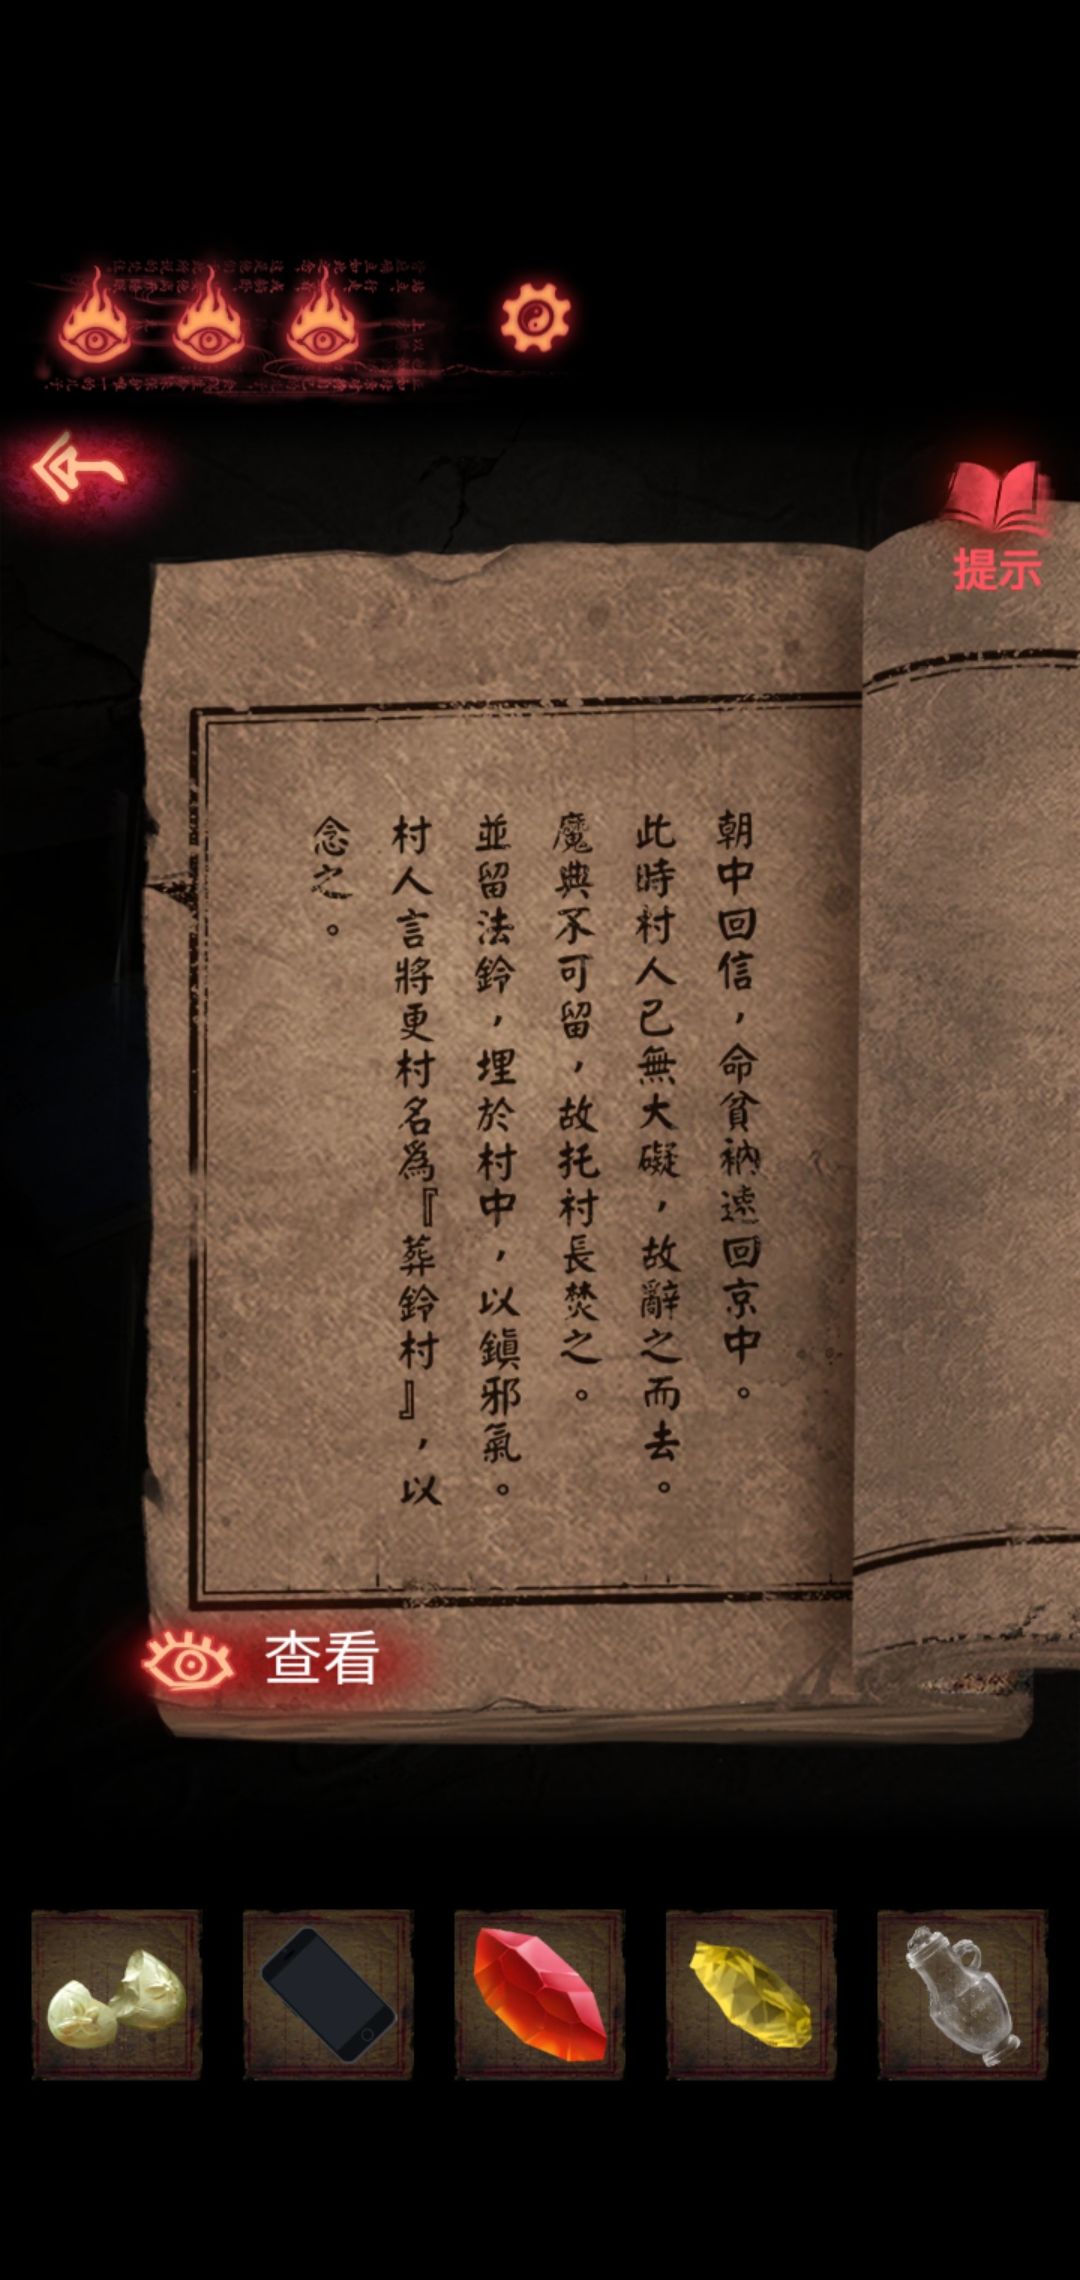 提示
朝中回信，命貧衲速回京中。
此時村人已無大礙，故辭之而去。
魔典不可留，故托村長焚之。
並留法鈴，埋於村中，以鎮邪氣。
村人言將更村名為『葬鈴村』，以
念之。
查看